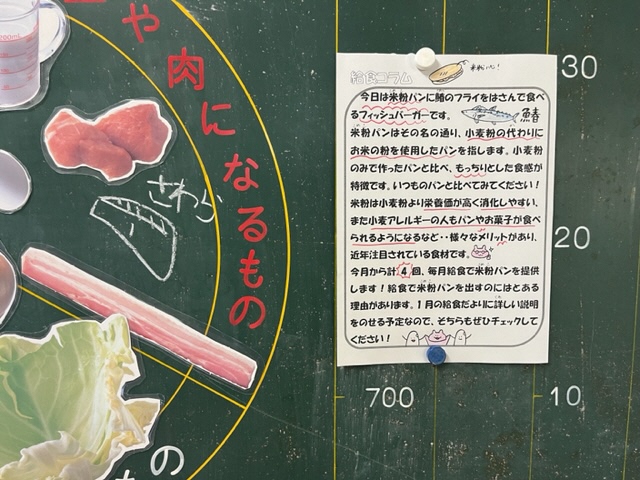 や肉になるもの
さわら
の
給食コラム
米粉パン!
今日は米粉パンに鰆のフライをはさんで食べ
るフィッシュバーガーです。
魚春
米粉パンはその名の通り、小麦粉の代わりに
お米の粉を使用したパンを指します。小麦粉
のみで作ったパンと比べ、もっちりとした食感が
特徴です。いつものパンと比べてみてください!
米粉は小麦粉より栄養価が高く消化しやすい、
また小麦アレルギーの人もパンやお菓子が食べ
られるようになるなど・・様々なメリットがあり、
近年注目されている食材です。
今月から計4回、毎月給食で米粉パンを提供
します!給食で米粉パンを出すのにはとある
理由があります。1月の給食だよりに詳しい説明
をのせる予定なので、そちらもぜひチェックして
ください!
30
20
10
700